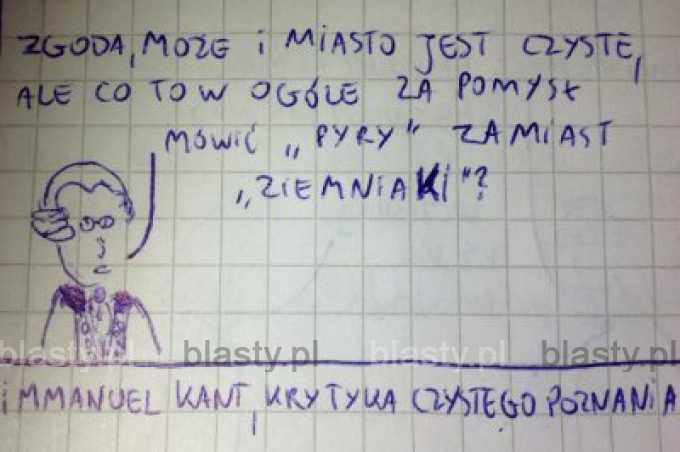 ZGODA, MOŻE I MIASTO JEST CZYSTE,
ALE CO TO W OGÓLE ZA POMYSŁ
MÓWIĆ „PYRY" ZAMIAST
„ZIEMNIAKI"?
blasty.pl blasty.pl blasty.pl blasty.pl
IMMANUEL KANT, KRYTYKA CZYSTEGO POZNANIA